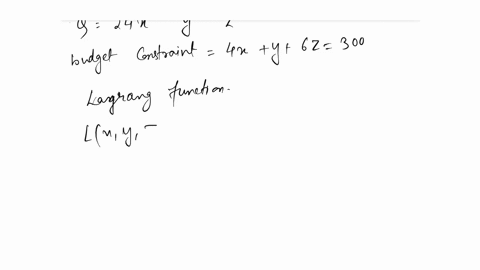 budget Constraint = 4x + y + 6Z = 300
Lagrang function.
L(x, y,